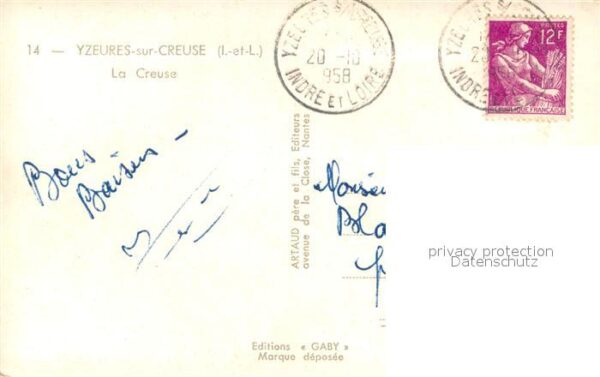 14 — YZEURES-sur-CREUSE (I.-et-L.)
La Creuse
YZEURES S/CREUSE
20 -10
1958
INDRE ET LOIRE
YZEURES
20
1958
INDRE
POSTES
12F
REPUBLIQUE FRANÇAISE
Bons
Baisers
ARTAUD père et fils, Editeurs
avenue de la Close, Nantes
privacy protection
Datenschutz
Editions « GABY »
Marque déposée